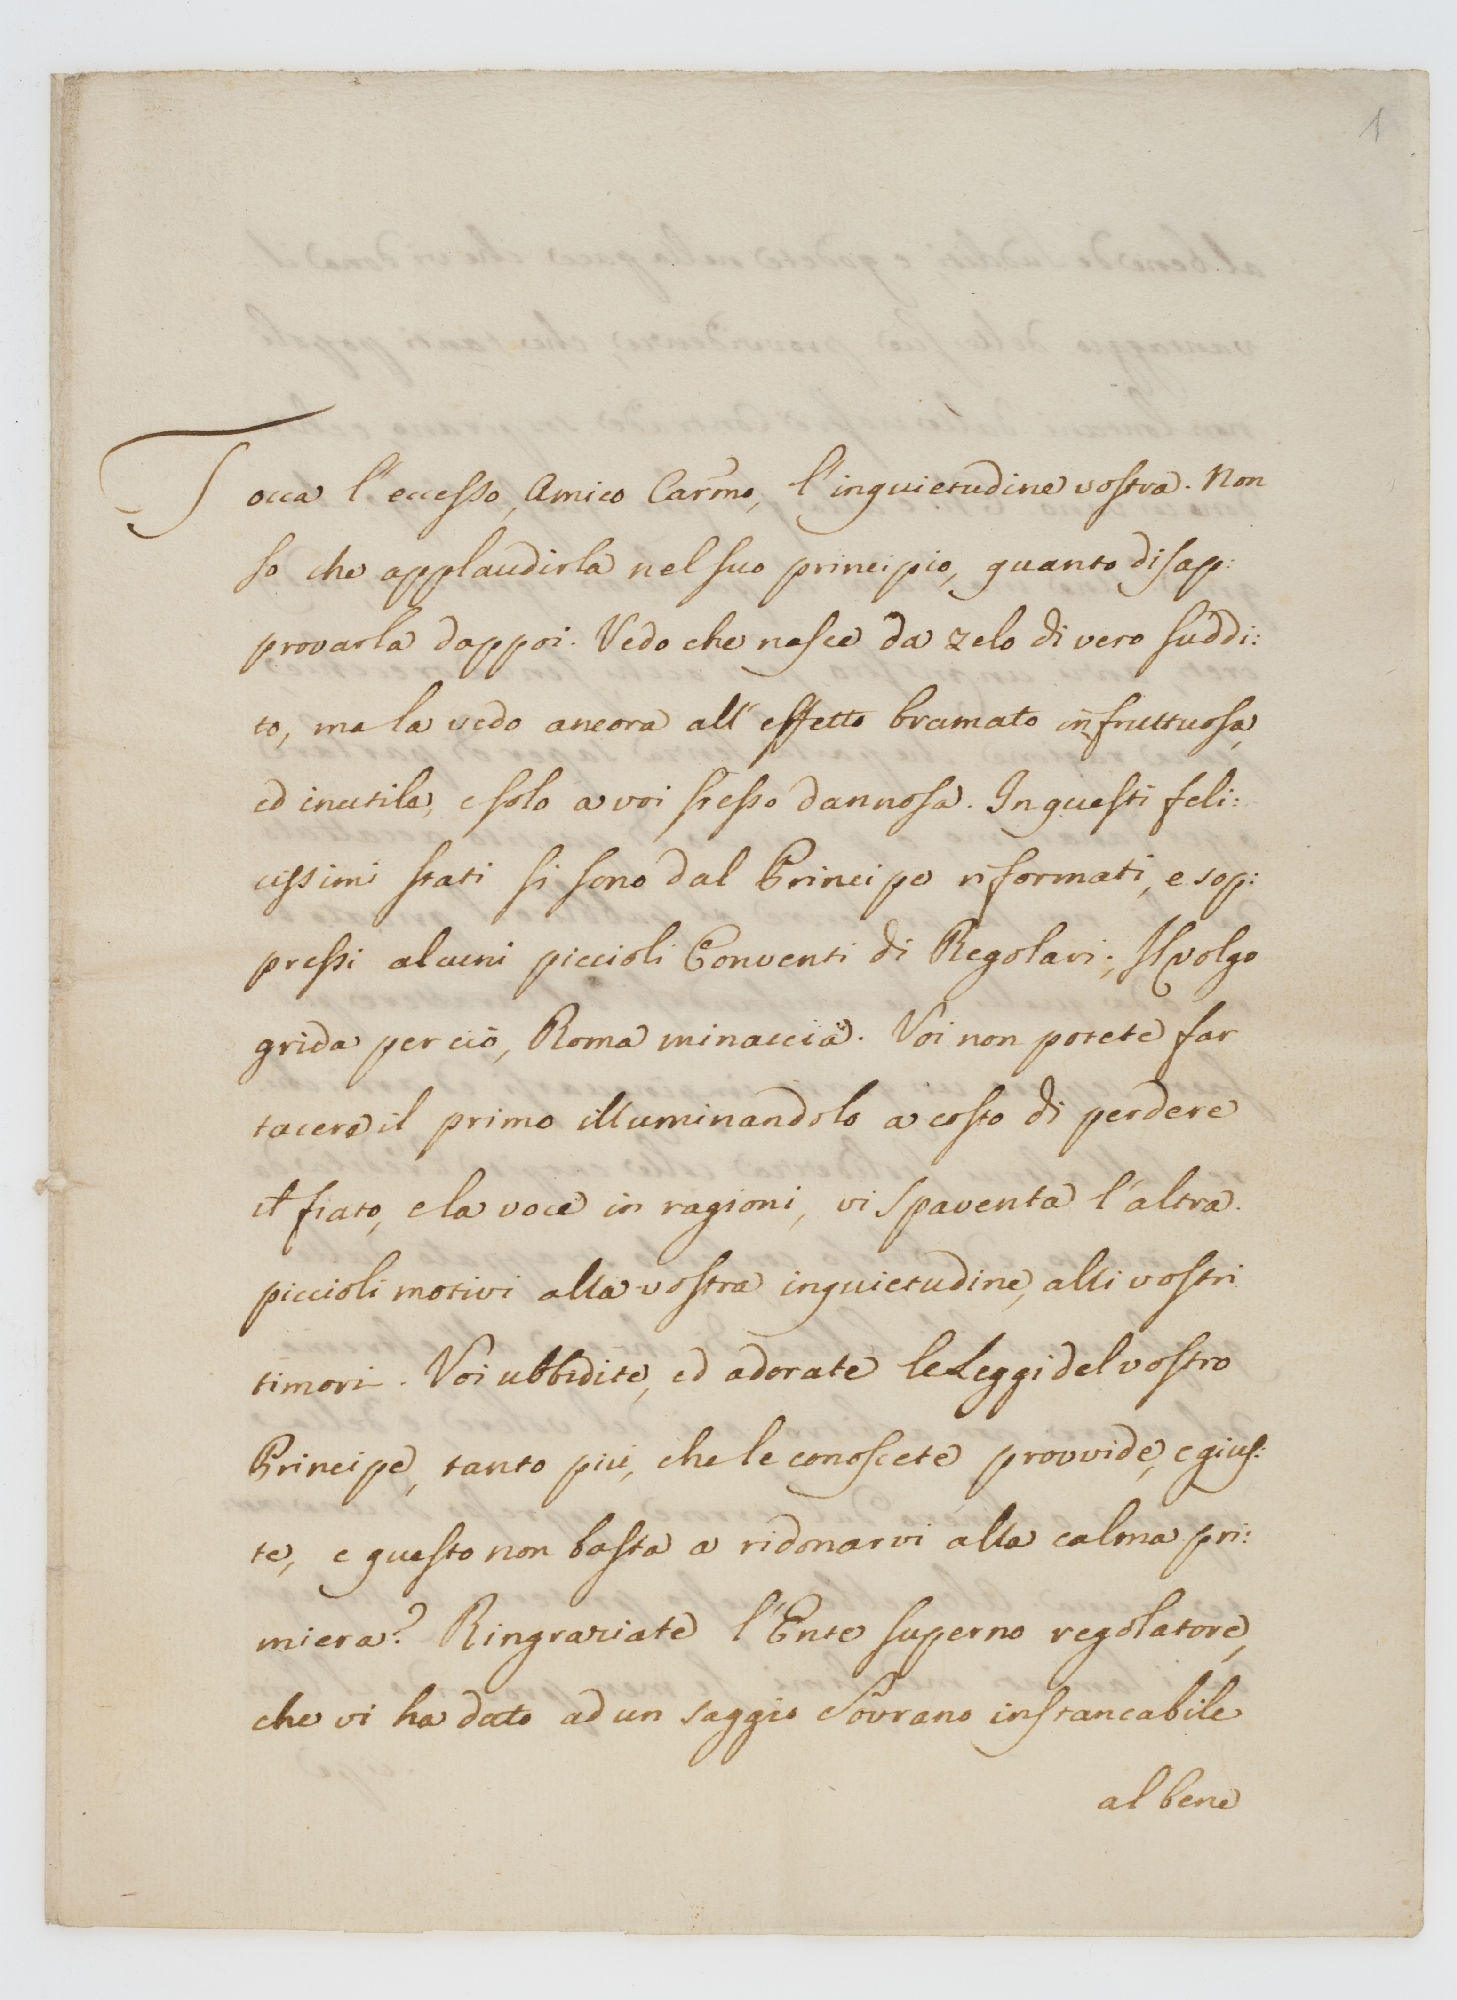 1
Tocca l'eccesso, Amico Car.mo, l'inquietudine vostra. Non
so che applaudirla nel suo principio, quanto disap:
provarla dappoi. Vedo che nasce da zelo di vero suddi:
to, ma la vedo ancora all'effetto bramato infruttuosa,
ed inutile, e solo a voi stesso dannosa. In questi feli:
cissimi stati si sono dal Principe riformati, e sop:
pressi alcuni piccioli Conventi di Regolari; Il volgo
grida per ciò, Roma minaccia. Voi non potete far
tacere il primo illuminandolo a costo di perdere
il fiato, e la voce in ragioni, vi spaventa l'altra.
piccioli motivi alla vostra inquietudine, alli vostri
timori. Voi ubbidite, ed adorate le Leggi del vostro
Principe, tanto più, che le conoscete provvide, e gius:
te, e questo non basta a ridonarvi alla calma pri:
miera? Ringraziate l'Ente superno regolatore,
che vi ha dato ad un saggio Sovrano instancabile
al bene